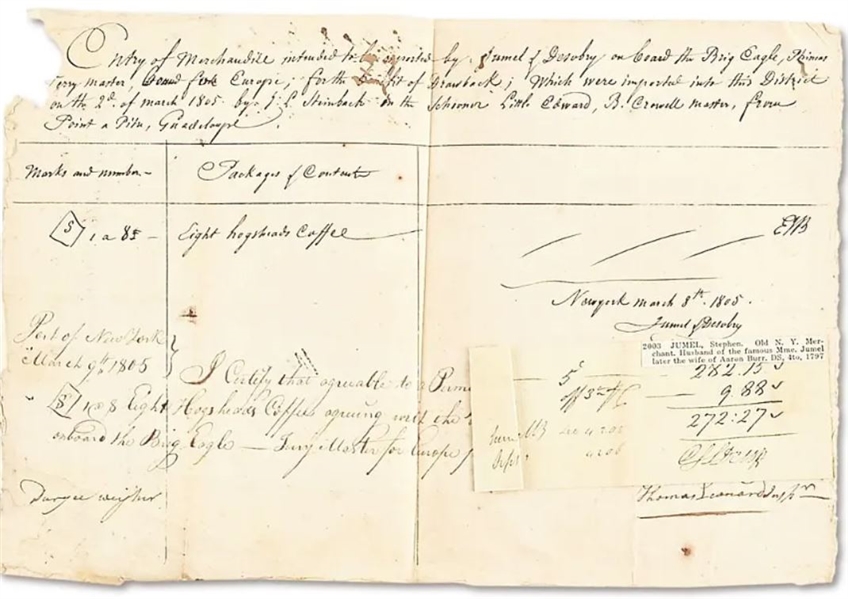 Entry of Merchandise intended to be exported by Jumel & Desobry on board the Brig Eagle, Phineas
Terry master, bound for Europe; for the benefit of Drawback; Which were imported into this District
on the 2d. of march 1805 by J. L Steinback in the Schooner Little Edward, B. Crowell master, from
Point a Pitre, Guadeloupe.
Marks and number
Packages & Contents
S 1 a 8
Eight hogsheads Coffee
Newyork march 8th. 1805.
Jumel & Desobry
2003 JUMEL, Stephen. Old N. Y. Mer-
chant. Husband of the famous Mme. Jumel
later the wife of Aaron Burr. DS, 4to, 1797
Port of New York
March 9th 1805
I Certify that agreable to a Permi
S 1 a 8 Eight Hogsheads Coffee agreeing with the
onboard the Brig Eagle — Terry Master for Europe
Duryee weigher
5
off 3
282.15
9.88
272:27
4206
Thomas Leonard Inspr